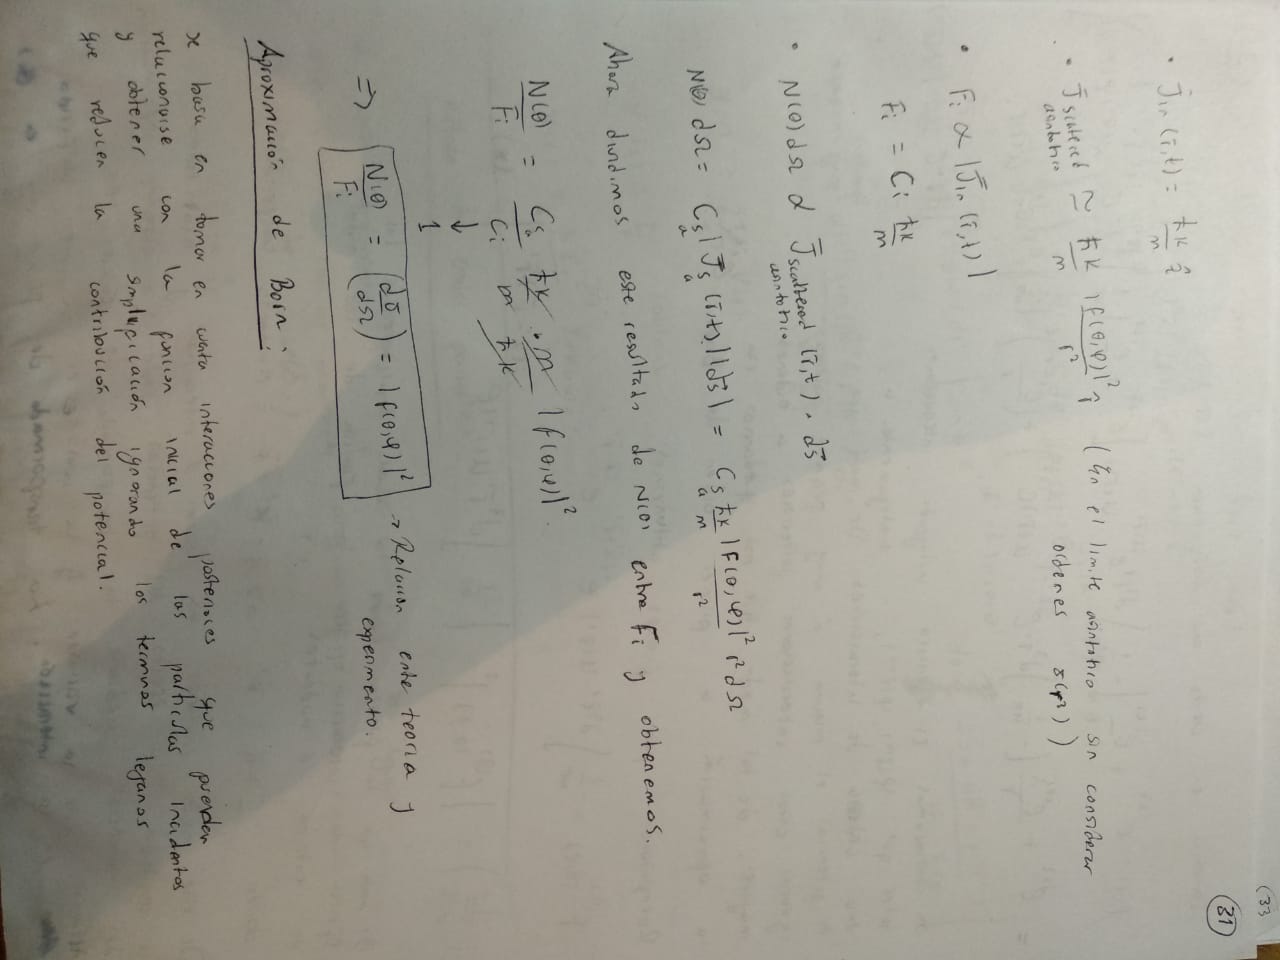 (33
(31)
• J̄in (r̄,t) = ħk/m ẑ
• J̄scattered asintotico ≃ ħk/m |f(θ,φ)|²/r² r̂ (En el limite asintotico sin considerar
ordenes
• Fi ∝ |J̄in (r̄,t)|
Fi = Ci ħk/m
• N(θ) dΩ ∝ J̄scattered asintotico (r̄,t) · ds̄
N(θ) dΩ = Csa |J̄sa (r̄,t)| |ds̄| = Csa ħk/m |f(θ,φ)|²/r² r² dΩ
Ahora dividimos este resultado de N(θ) entre Fi y obtenemos.
N(θ)/Fi = Csa/Ci ħk/m · m/ħk |f(θ,φ)|².
↓
1
⇒ N(θ)/Fi = (dσ/dΩ) = |f(θ,φ)|² → Relacion entre teoria y
experimento.
Aproximación de Born:
se basa en tomar en cuenta interacciones posteriores que pueden
relacionarse con la funcion inicial de las particulas incidentes
y obtener una simplificación ignorando los terminos lejanos
que reducen la contribución del potencial.